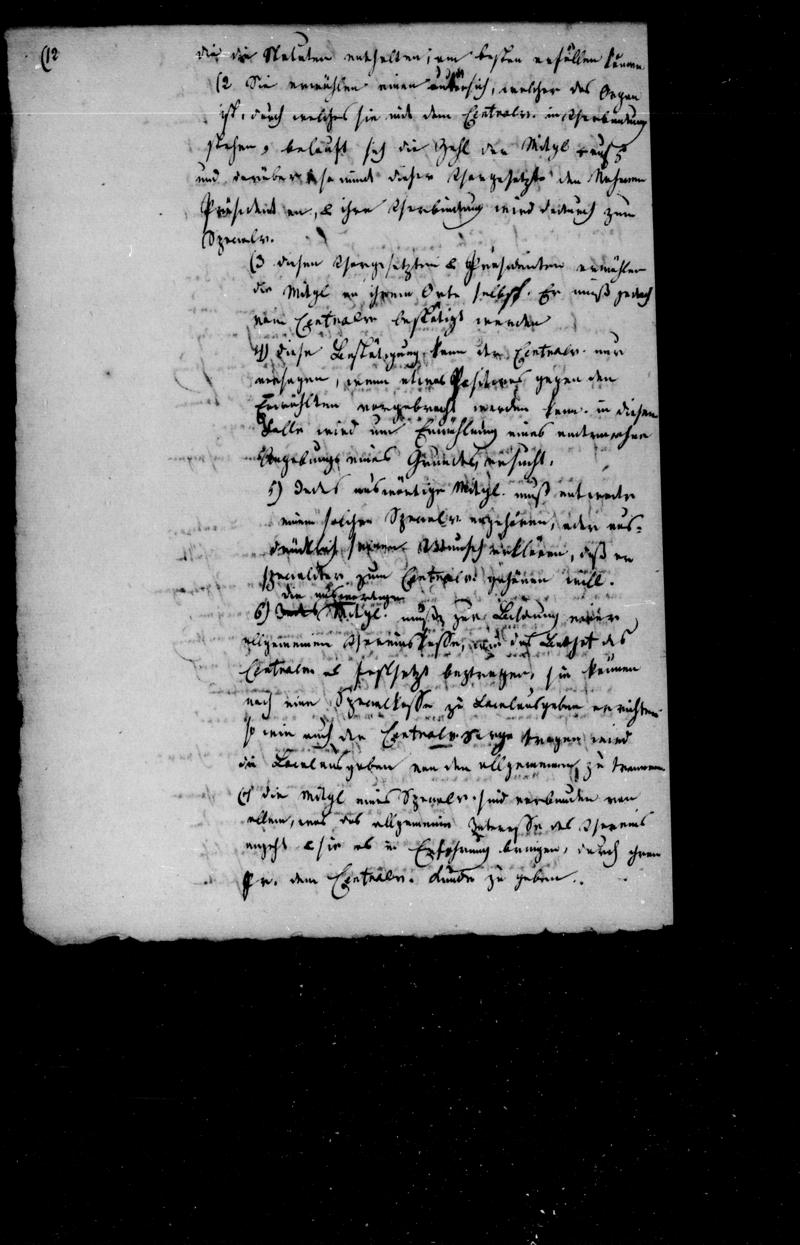 (12
die die Statuten enthalten, am besten erfüllen können
(2 Sie erwählen einen unter sich, welcher das Organ
ist, durch welches sie mit dem Centralv. in Verbindung
stehen, beläuft sich die Zahl der Mitgl auf 5
und darüber so nimmt dieser Vorgesetzte den Nahmen
Präsident an, & ihre Verbindung wird dadurch zum
Specialv.
(3 diesen Vorgesetzten & Präsidenten erwählen
die Mitgl an ihrem Orte selbst. Er muß jedoch
vom Centralv bestätigt werden
4) diese Bestätigung kann der Centralv. nur
versagen, wenn etwas Positives gegen den
Erwählten vorgebracht werden kann. in diesem
Falle wird um Erwählung eines andern ohne
Angebung eines Grundes ersucht.
5) Jedes auswärtige Mitgl. muß entweder
einem solchen Specialv angehören, oder aus-
drücklich seinen Wunsch erklären, daß er
specialiter zum Centralv. gehören will.
die auswärtigen
6) Jedes Mitgl. muß zur Bildung einer
allgemeinen Vereinskasse, wie das Budget des
Centralv es festsetzt beytragen, sie können
noch eine Specialkasse zu Localausgaben errichten
so wie auch der Centralv. Sorge tragen wird
die Localausgaben von den allgemeinen zu trennen.
(7 die Mitgl eines Specialv. sind verbunden von
allem, was das allgemeine Interesse des Vereins
angeht & sie es in Erfahrung bringen, durch ihren
Pr. dem Centralv. Kunde zu geben.